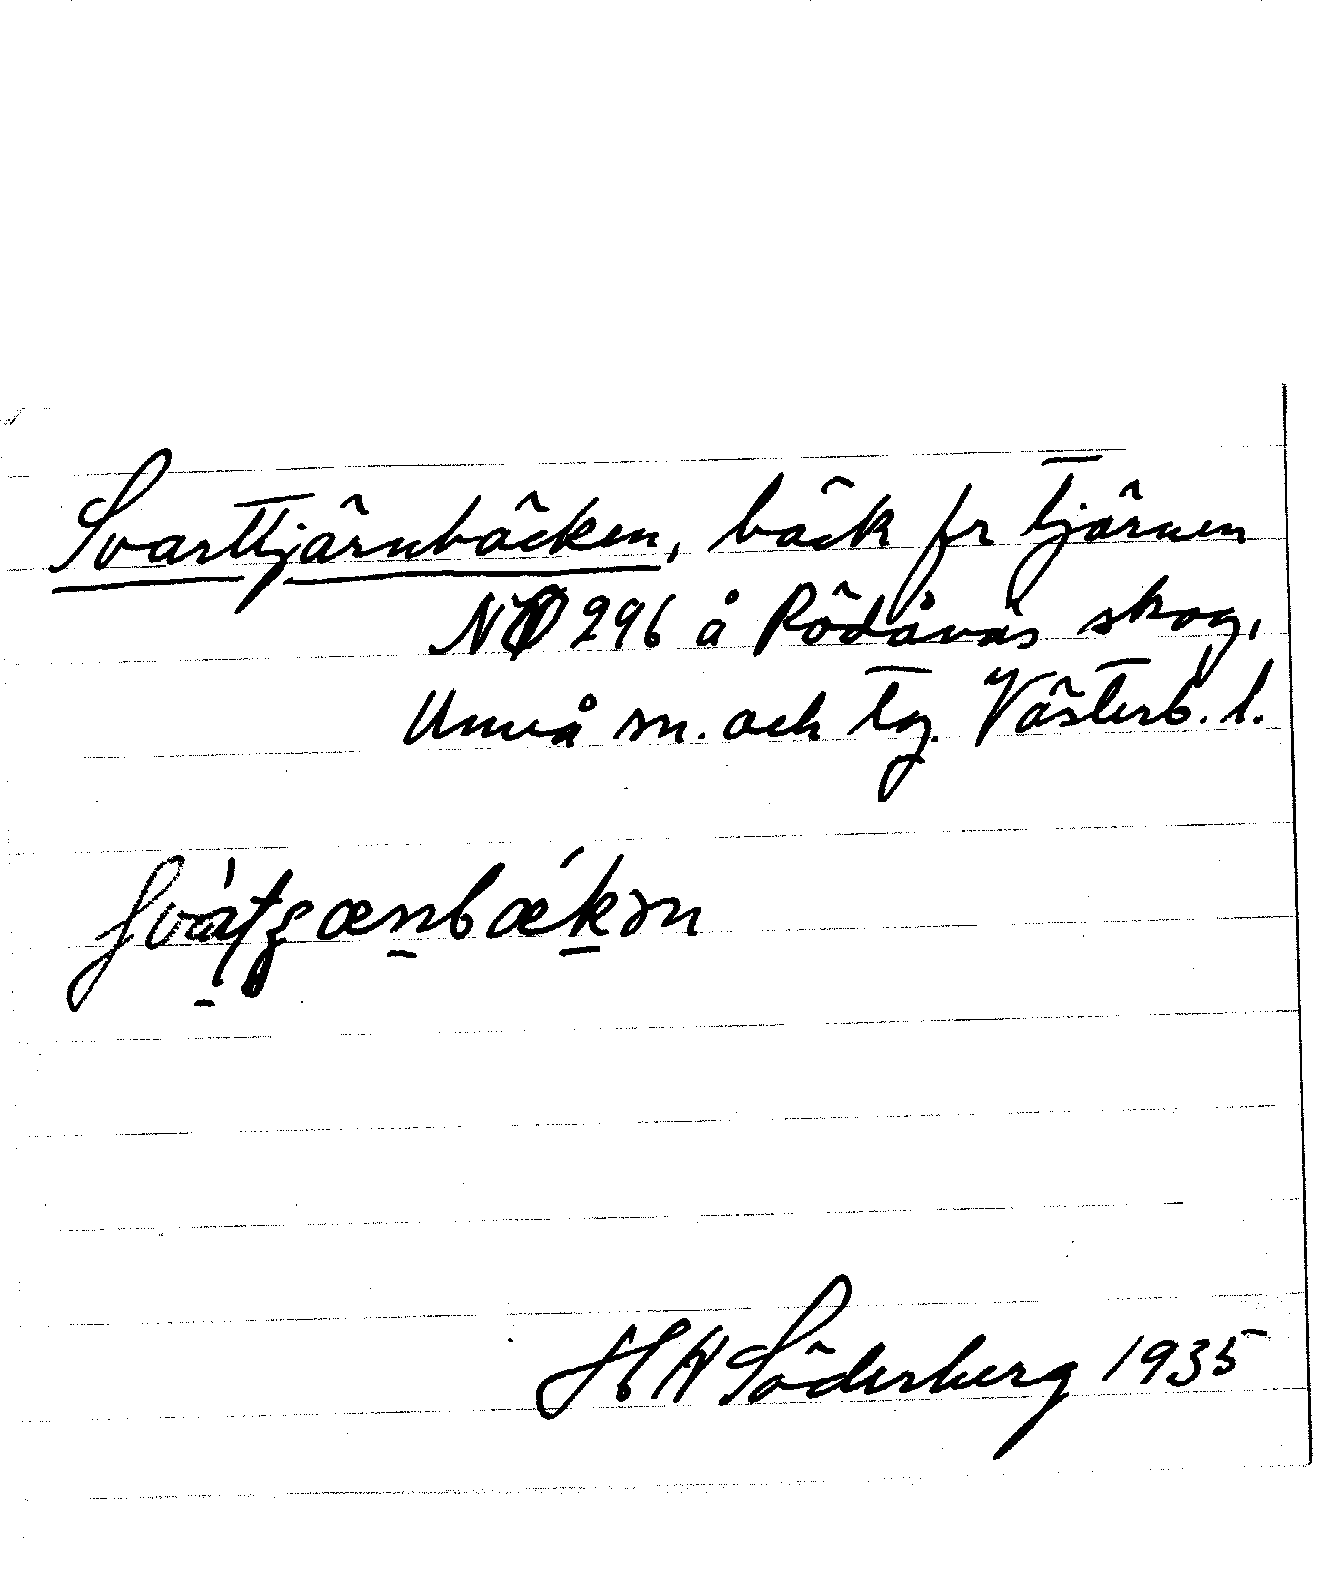 Svarttjärnbäcken, bäck fr tjärnen
NO 296 å Rödånäs skog,
Umeå sn. och tg. Västerb. l.
H W Söderberg 1935